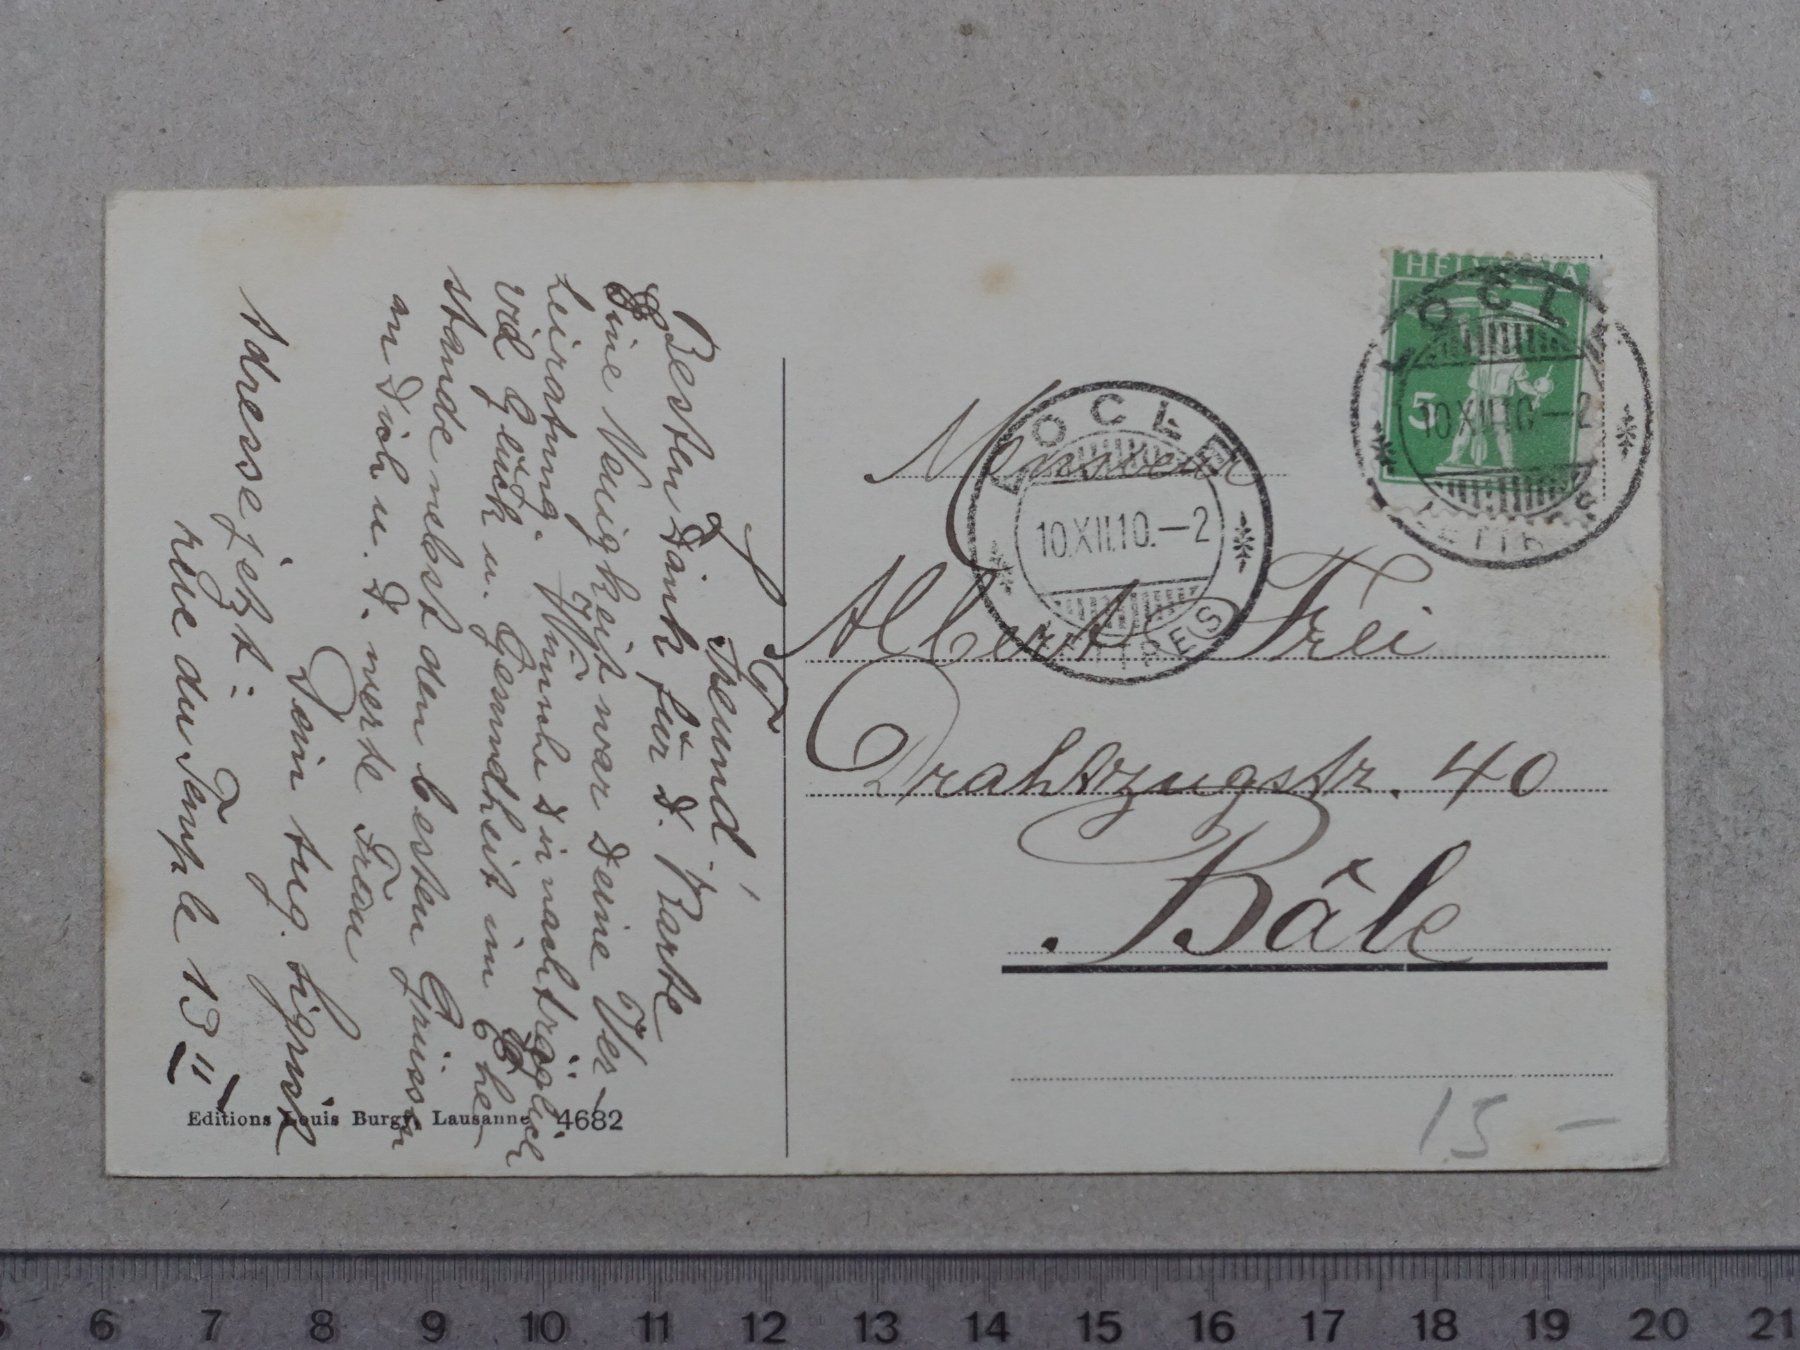 Freund!
Besten Dank für d. Karte
Eine Neuigkeit war deine Ver-
heiratung. Wünsche dir nachträglich
viel Glück u. Gesundheit im Ehe-
stande nebst den besten Grüssen
an Dich u. d. werte Frau
Dein
Adresse jetzt:
rue du Temple 13 II
Editions Louis Burgy, Lausanne 4682
HELVETIA
5
LOCLE
10.XII.10.—2
LETTRES
LOCLE
10.XII.10.—2
LETTRES
Monsieur
Albert Frei
Drahtzugstr. 40
Bâle
15 –
5 6 7 8 9 10 11 12 13 14 15 16 17 18 19 20 21